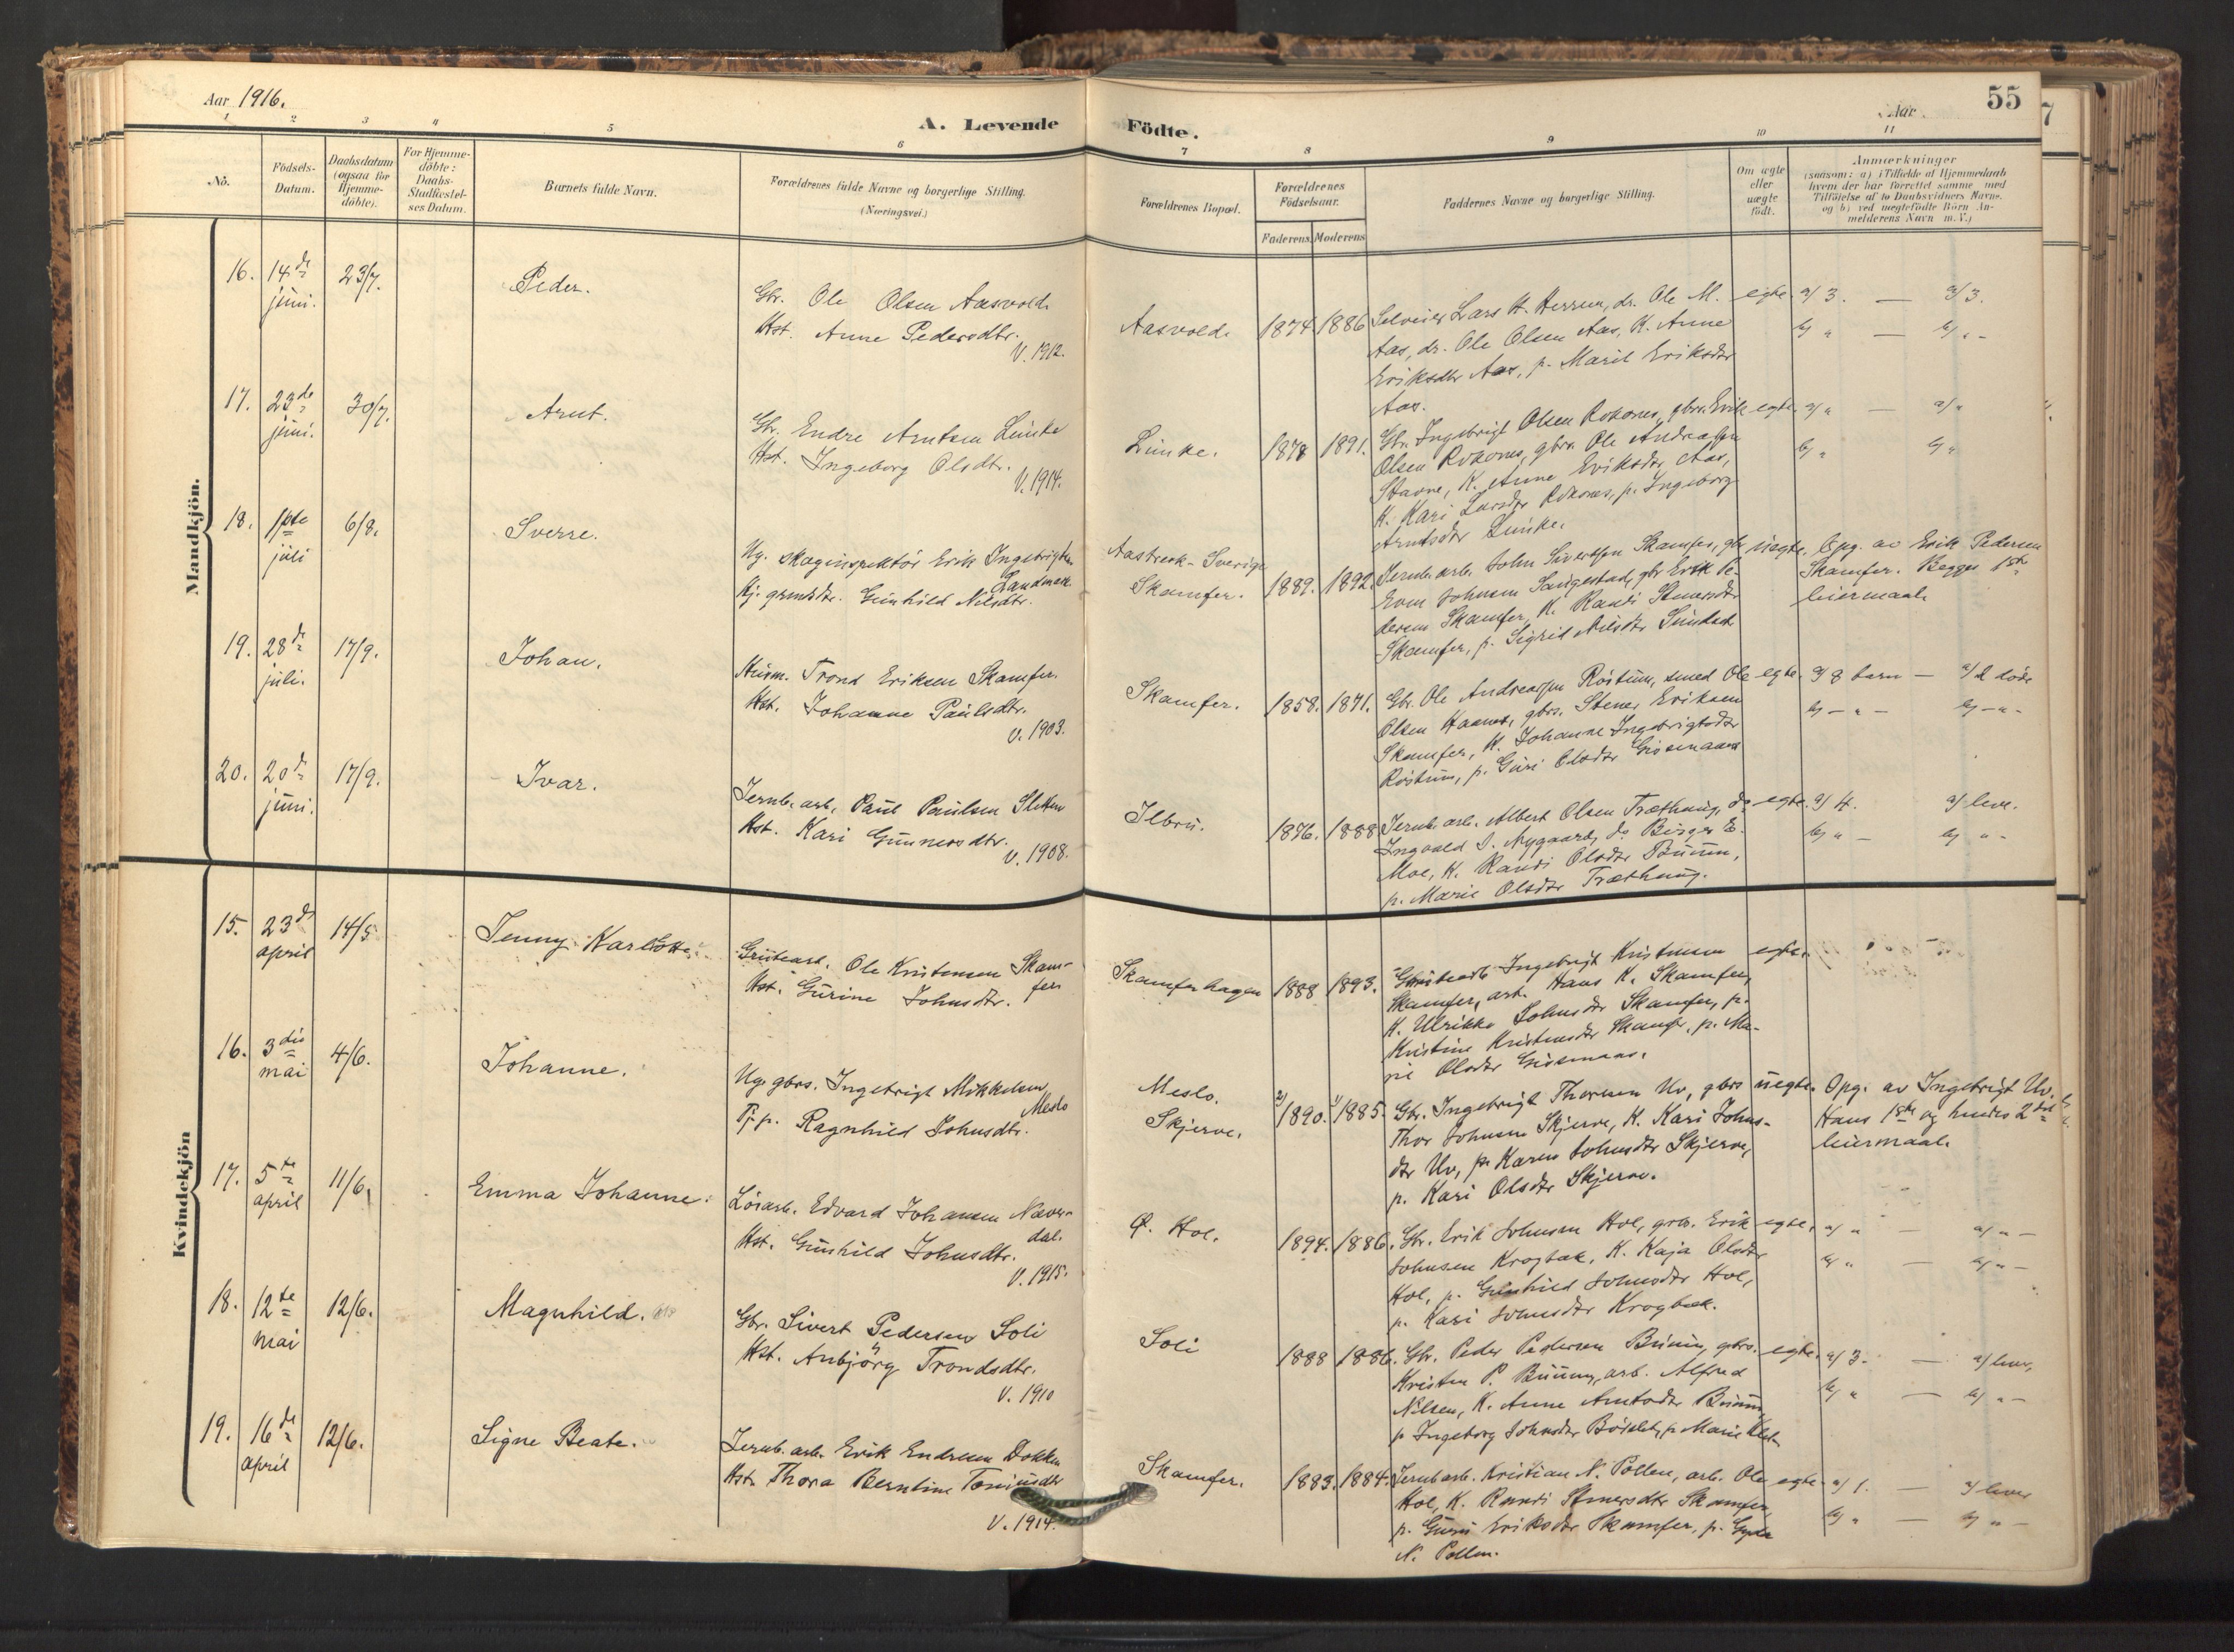 Aar 1916.
A. Levende Födte.
Aar
55
7
1
2
3
4
5
6
7
8
9
10
11
No.
Födsels-
Datum.
Daabsdatum
(ogsaa for
Hjemme-
döbte).
For Hjemme-
döbte:
Daabs-
Stadfæstel-
ses Datum.
Barnets fulde Navn.
Forældrenes fulde Navne og borgerlige Stilling.
(Næringsvei.)
Forældrenes Bopæl.
Forældrenes
Födselsaar.
Faderens.
Moderens
Faddernes Navne og borgerlige Stilling.
Om ægte
eller
uægte
födt.
Anmærkninger
(saasom: a) i Tilfælde af Hjemmedaab
hvem der har forrettet samme med
Tilföielse af to Daabsvidners Navne.
og b) ved uægtefödte Börn An-
melderens Navn m. V.)
Mandkjön.
16. 14de juni. 23/7. Peder.
Gbr. Ole Olsen Aasvold.
Hst. Anne Pedersdtr.
V. 1912.
Aasvold. 1874. 1886
Selveier Lars H. Herrem, dr. Ole M.
Aas, dr. Ole Olsen Aas, K. Anne
Eriksdtr Aas, p. Marit Eriksdtr
Aas.
egte. a/ 3. — a/ 3.
b/ " — b/ " -
17. 23de juni. 30/7. Arnt.
Gbr. Endre Arntsen Lunke
Hst. Ingeborg Olsdtr.
V. 1914.
Lunke. 1878 1891.
Gbr. Ingebrigt Olsen Rokones, gbrs. Erik
Olsen Rokones, gbrs. Ole Andreasen
Stavne, K. Anne Eriksdtr Aas,
K. Kari Larsdtr Rokones, p. Ingeborg
Arntsdtr Lunke.
egte. a/ " — a/ "
b/ " b/ "
18. 1ste juli 6/8. Sverre.
Ug. skoginspektör Erik Ingebrigtsen
Landmark
Hj. grmsdtr. Gunhild Nilsdtr.
Aastræk - Sverige
Skamfer. 1889. 1892.
Jernb. arb. John Sivertsen Skamfer, gbr
Even Johnsen Saugestad, gbr Erik Pe-
dersen Skamfer, K. Randi Stenersdtr
Skamfer, p. Sigrid Nilsdtr Sundset
uegte. Opg. av Erik Pedersen
Skamfer. Begges 1ste
leiermaal.
19. 28de juli. 17/9. Johan.
Husm. Trond Eriksen Skamfer.
Hst. Johanne Paulsdtr.
V. 1903.
Skamfer. 1858. 1871.
Gbr. Ole Andreassen Röstum, smed Ole
Olsen Haanes, gbrs. Stener Eriksen
Skamfer, K. Johanne Ingebrigtsdtr
Röstum, p. Guri Olsdtr Gissenaas
egte. a/ 8 barn — a/ 2 döde
b/ - " - b/ - " -
20. 20de juni. 17/9. Ivar.
Jernb. arb. Paul Paulsen Sletten
Hst. Kari Gunnersdtr.
V. 1908.
Ilbru. 1876. 1888
Jernb. arb. Albert Olsen Træthaug, do
Ingvald S. Nygaard, do Birger E.
Moe, K. Randi Olsdtr Buum,
p. Marie Olsdtr Træthaug.
egte. a/ 4. a/ leve.
b/ " - b/ " -
Kvindekjön
15. 23de april 14/5 Jenny Karlotte.
Grubearb. Ole Kristensen Skam-
fer
Hst. Gurine Johnsdtr.
Skamferhagen 1888 1893.
Grubearb Ingebrigt Kristensen
Skamfer, arb. Hans K. Skamfer,
K. Ulrikke Johnsdtr Skamfer, p.
Kristine Kristensdtr Skamfer, p. Ma-
rie Olsdtr Gissenaas.
egte.
16. 3die mai 4/6. Johanne.
Ug. gbrs. Ingebrigt Mikkelsen
Meslo
Tj. p. Ragnhild Johnsdtr.
Meslo.
Skjerve. 1890. 1885.
Gbr. Ingebrigt Thoresen Uv, gbrs
Thor Johnsen Skjerve, K. Kari Johns-
dtr Uv, p. Karen Johnsdtr Skjerve,
p. Kari Olsdtr Skjerve.
uegte. Opg. av Ingebrigt Uv.
Hans 1ste og hendes 2det
leiermaal.
17. 5te april 11/6. Emma Johanne.
Lösarb. Edvard Johansen Næver-
dal.
Hst. Gunhild Johnsdtr.
V. 1915.
Ö. Hol. 1894. 1886.
Gbr. Erik Johnsen Hol, grb. Erik
Johnsen Krogbæk, K. Kaja Olsdtr
Hol, p. Gunhild Johnsdtr Hol,
p. Kari Johnsdtr Krogbæk.
egte. a/ " — a/ " -
b/ " — b/ " -
18. 12te mai 12/6. Magnhild.
Gbr. Sivert Pedersen Soli
Hst. Anbjörg Trondsdtr.
V. 1910
Soli 1888 1886.
Gbr. Peder Pedersen Buum, gbrs.
Kristen P. Buum, arb. Alfred
Nilsen, K. Anne Arntsdtr Buum,
p Ingeborg Johnsdtr, p. Marie
egte. a/ 3. — a/ lever,
b/ " — b/ " -
19. 16de april 12/6. Signe Beate.
Jernb. arb. Erik Endresen Dokken
Hst. Thora Berntine Toniusdtr
V. 1914.
Skamfer. 1883. 1884.
Jernb arb. Kristian N. Pollen, arb. Ole
Hol, K. Randi Stenersdtr Skamfer,
p. Guru Eriksdtr Skamfer, p. Gyda
N. Pollen.
egte. a/ 1. — a/ lever
b/ " — b/ " -